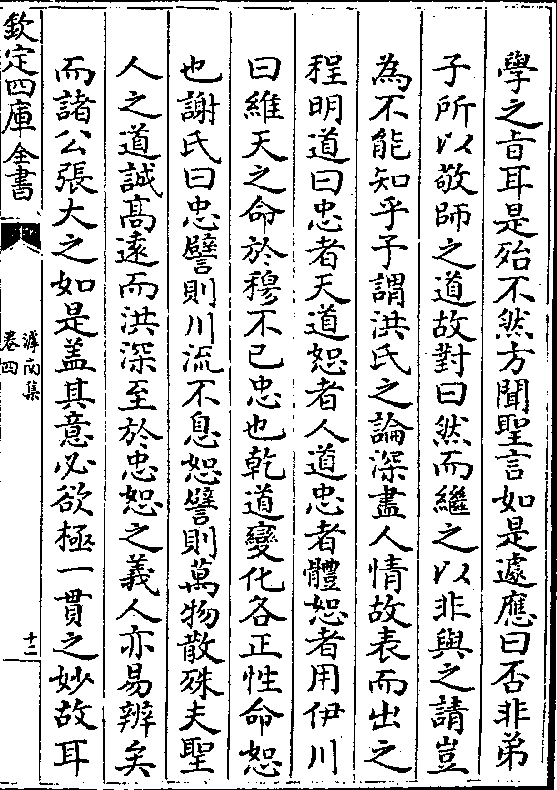 學之㫖耳是殆不然方聞聖言如是遽應曰否非弟
子所以敬師之道故對曰然而繼之以非與之請豈
為不能知乎予謂洪氏之論深盡人情故表而出之
程明道曰忠者天道恕者人道忠者體恕者用伊川
曰維天之命於穆不已忠也乾道變化各正性命恕
也謝氏曰忠譬則川流不息恕譬則萬物散殊夫聖
人之道誠髙逺而洪深至於忠恕之義人亦易辨矣
而諸公張大之如是盖其意必欲極一貫之妙故耳
欽定四庫全書
滹南集
卷四
十二